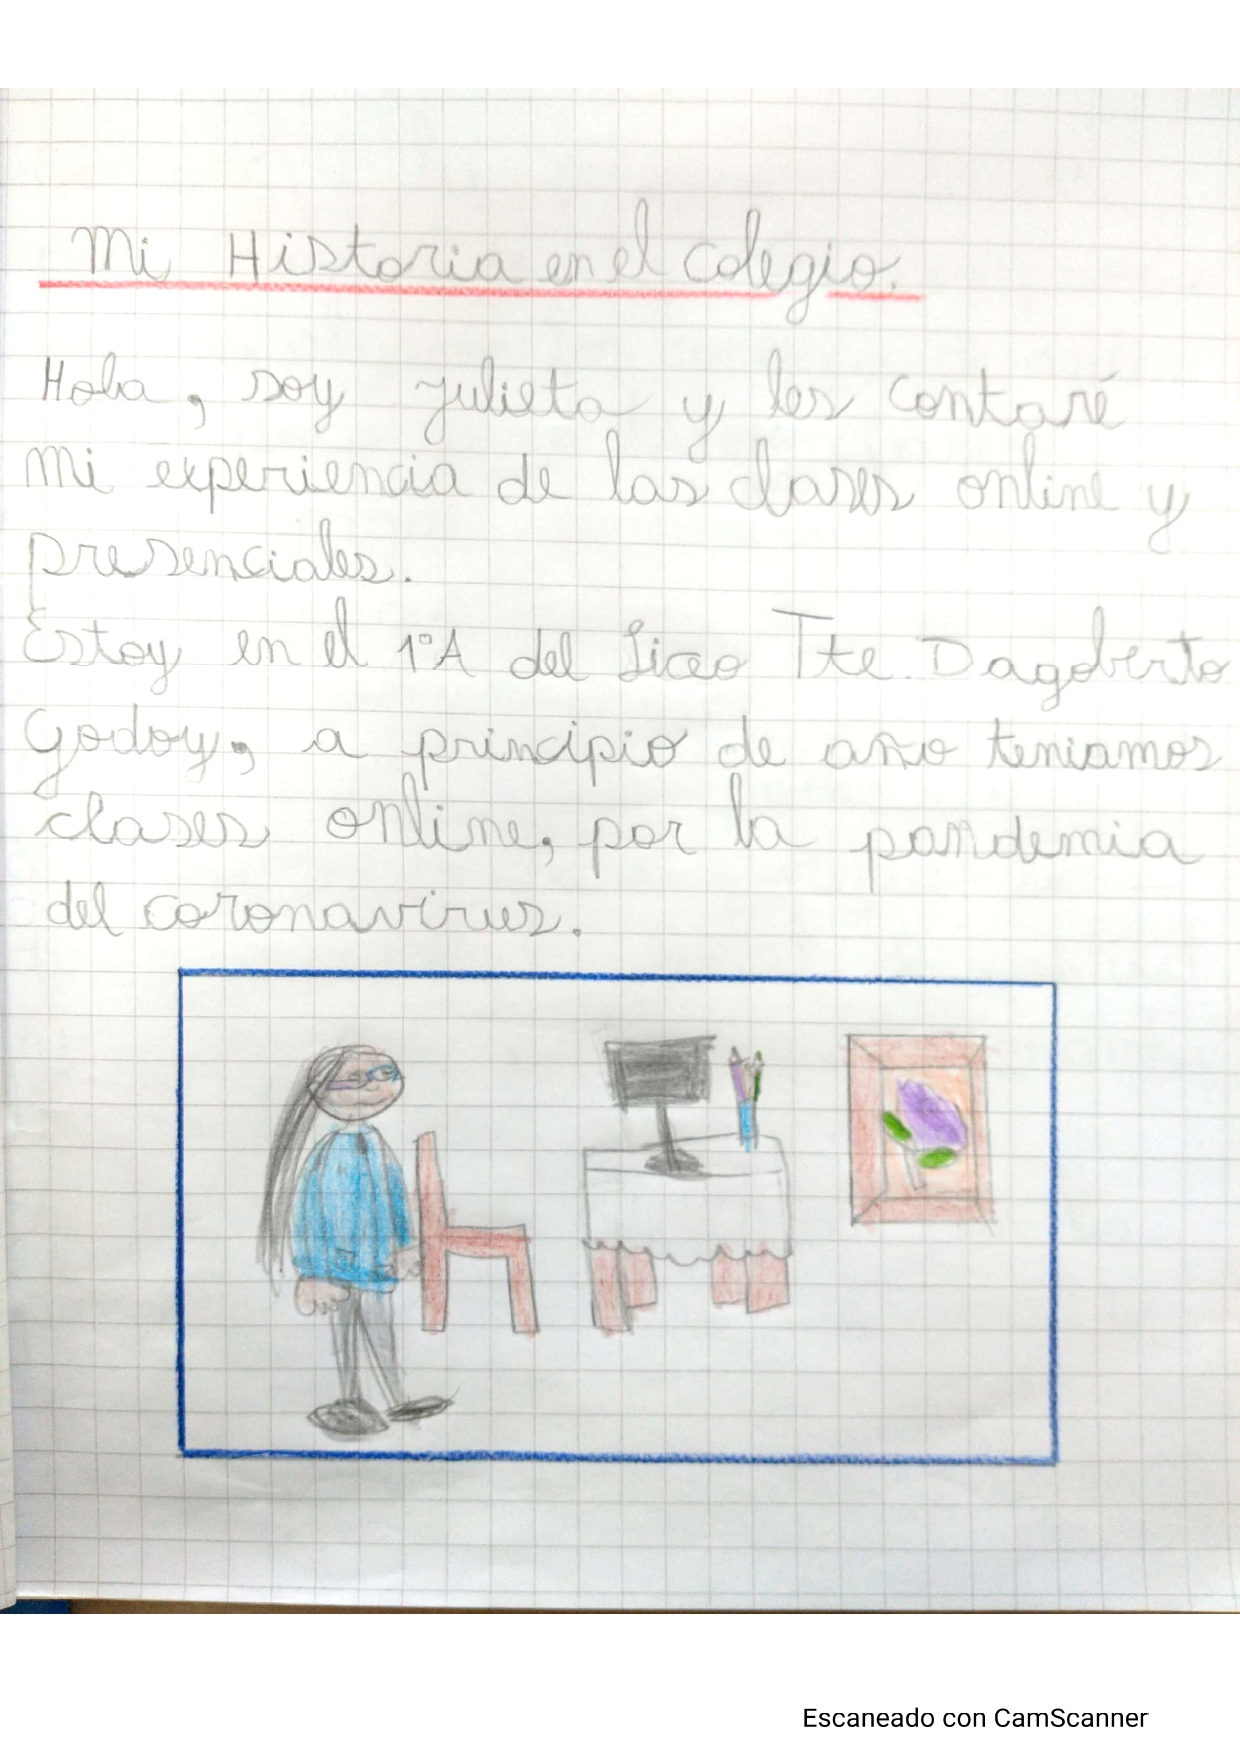 Mi Historia en el colegio.
Hola, soy julieta y les contaré
mi experiencia de las clases online y
presenciales.
Estoy en el 1°A del Liceo Tte. Dagoberto
Godoy, a principio de año teniamos
clases online, por la pandemia
del coronavirus.
Escaneado con CamScanner